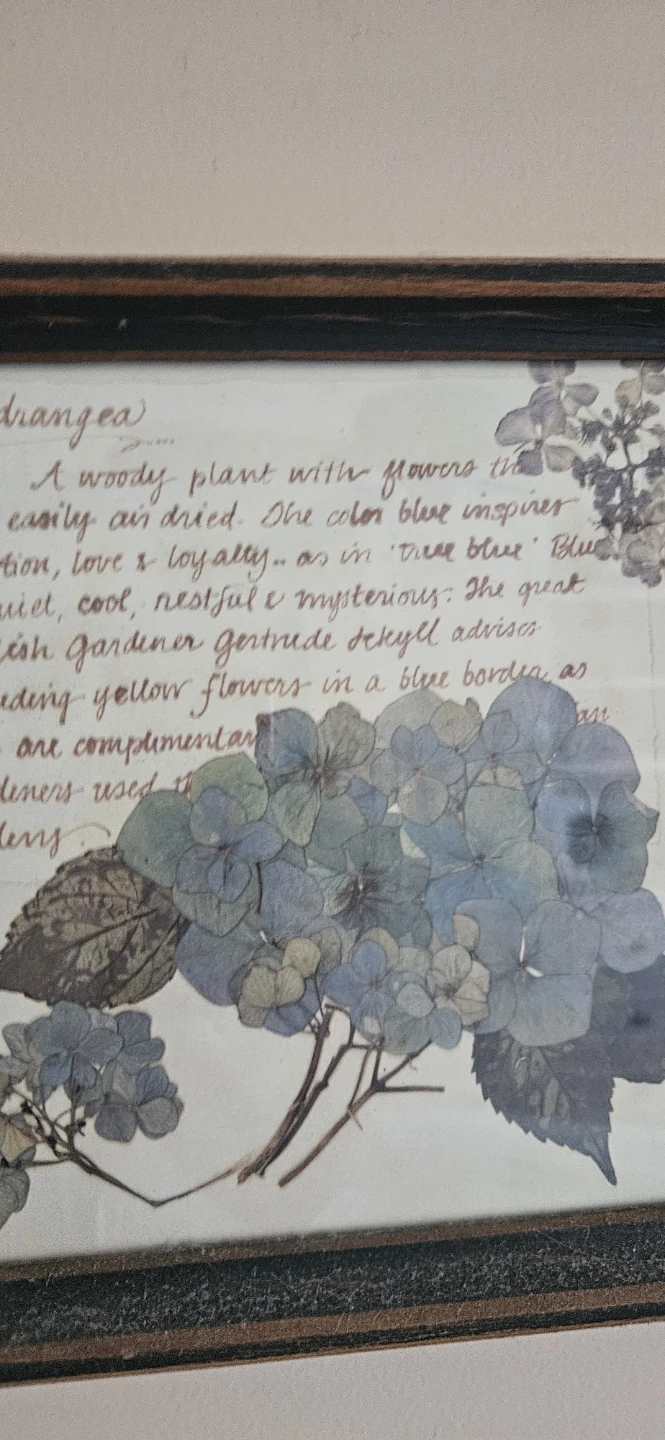 drangea
A woody plant with flowers th
easily air dried. The color blue inspires
tion, love & loyalty.. as in 'true blue' Blue
uiet, cool, restful & mysterious. The great
ish Gardener Gertrude Jekyll advises
uding yellow flowers in a blue border as
are complimentar an
deners used th
dens.